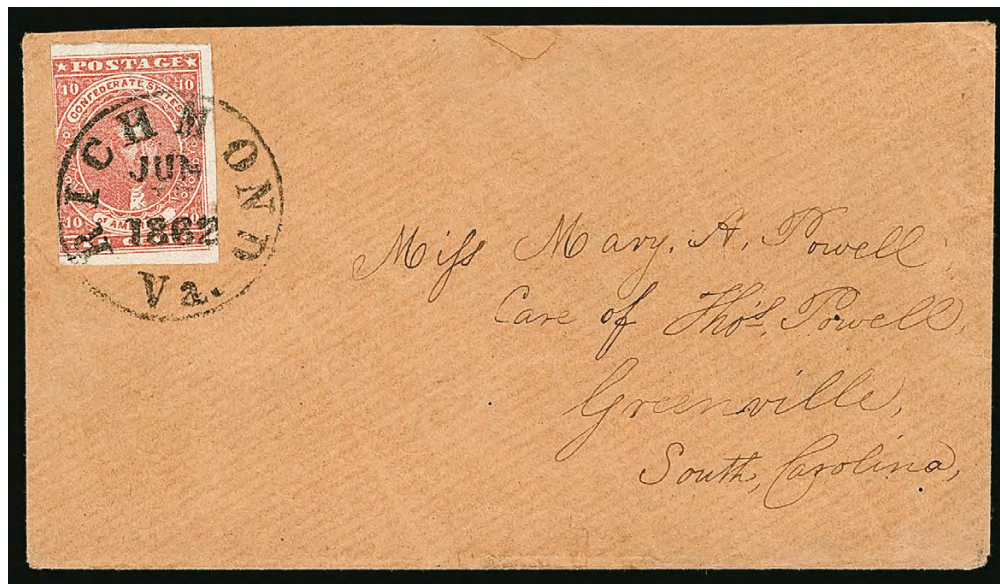 ★POSTAGE★
10 10
CONFEDERATE STATES
10
RICHMOND
JUN
1862
Va.
Miss Mary. A. Powell,
Care of Thos. Powell,
Greenville,
South, Carolina,